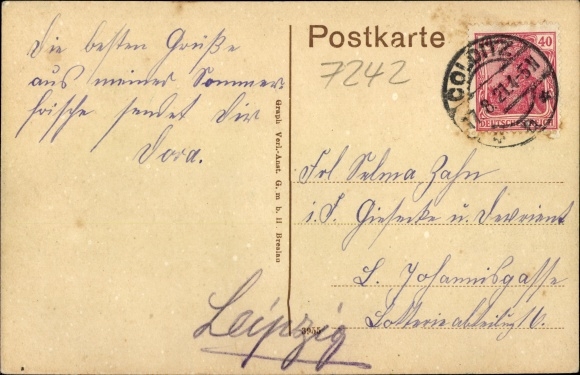 Die besten Grüße
aus meiner Sommer-
frische sendet Dir
Dora.
Graph. Verl.-Anst. G. m. b. H. Breslau
3955
Postkarte
7242
40
COLDITZ
8.21.
DEUTSCHES REICH
Frl Selma Zahn
i. F. Giesecke u. Devrient
L. Johannisgasse
Lotterieabteilg
Leipzig